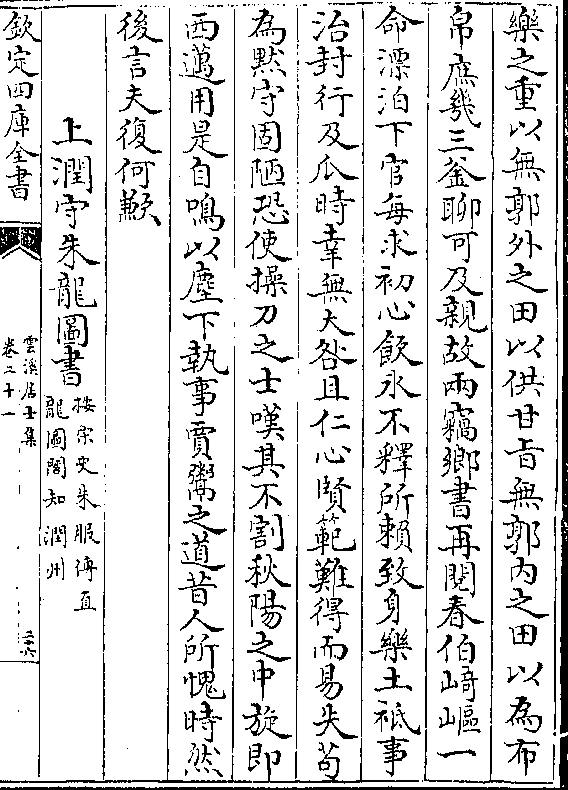 樂之重以無郭外之田以供甘旨無郭内之田以為布
帛庶幾三釜聊可及親故兩竊鄉書再閱春伯崎嶇一
命漂泊下官每求初心飲氷不釋所頼致身樂土袛事
治封行及瓜時幸無大咎且仁心賢範難得而易失茍
為黙守固陋恐使操刀之士嘆其不割秋陽之中旋即
西邁用是自鳴以塵下執事賈鬻之道昔人所愧時然
後言夫復何歉
上潤守朱龍圖書
按宋史朱服傳直
龍圖閣知潤州
欽定四庫全書
雲溪居士集
卷二十一
二六